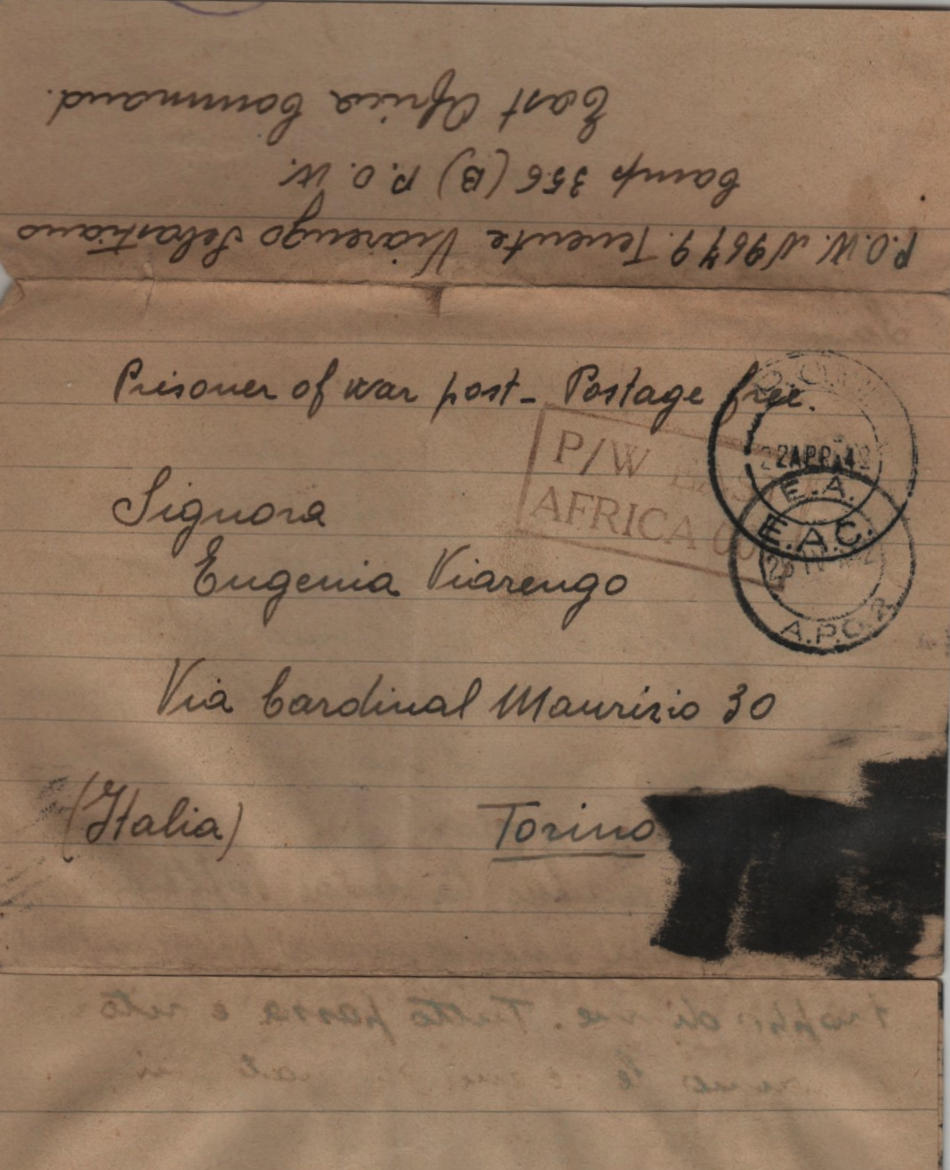 P.O.W. N 9649. Tenente Viarengo Sebastiano
Camp 356 (B) P.O.W.
East Africa Command.
Prisoner of war post - Postage free.
P/W EAST
AFRICA CO
2APR 42
E.A.
E.A.C.
A.P.O.
Signora
Eugenia Viarengo
Via Cardinal Maurizio 30
(Italia)
Torino
troppo di me. Tutto passa e